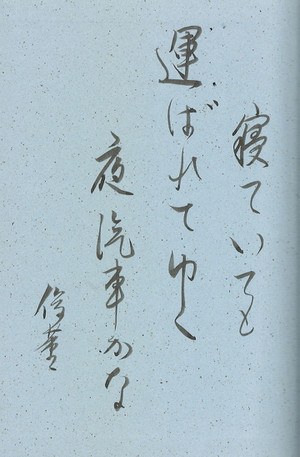 寝ていても
運ばれてゆく
夜汽車かな